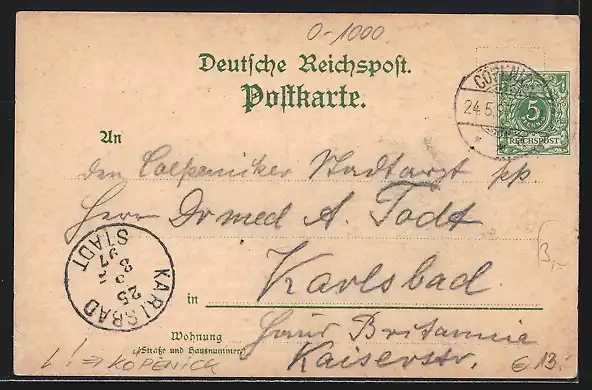 0-1000
Deutsche Reichspost.
Postkarte.
5
REICHSPOST
24.5.
An
den Coepenicker Stadtarzt pp
Herrn Dr med A. Todt
KARLSBAD
STADT
25
5
97
in Karlsbad
Wohnung
(Straße und Hausnummer)
Haus Britannia
Kaiserstr.
L! => KÖPENICK
3,-
€ 13.-